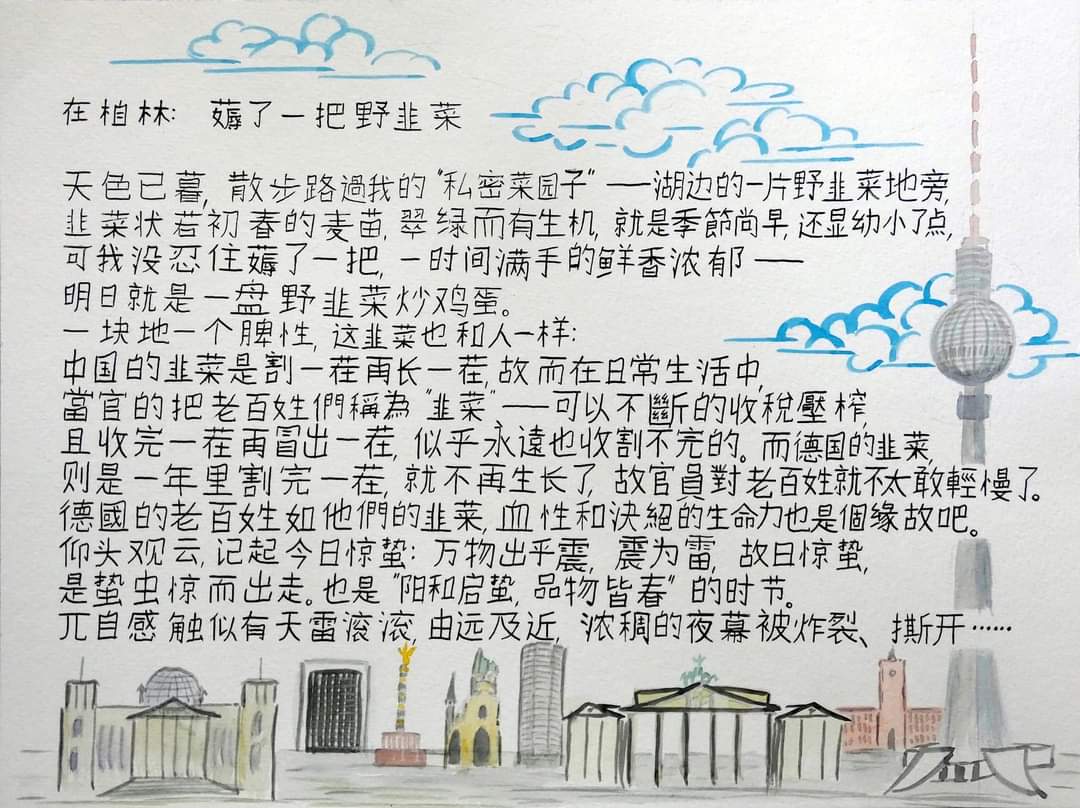 在柏林： 薅了一把野韭菜
天色已暮，散步路過我的“私密菜园子”——湖边的一片野韭菜地旁，
韭菜状若初春的麦苗，翠绿而有生机，就是季節尚早，还显幼小了点，
可我没忍住薅了一把，一时间满手的鲜香浓郁——
明日就是一盘野韭菜炒鸡蛋。
一块地一个脾性，这韭菜也和人一样：
中国的韭菜是割一茬再长一茬，故而在日常生活中，
當官的把老百姓們稱為“韭菜”——可以不斷的收稅壓榨，
且收完一茬再冒出一茬，似乎永遠也收割不完的。而德国的韭菜，
则是一年里割完一茬，就不再生长了，故官員對老百姓就不太敢輕慢了。
德國的老百姓如他們的韭菜，血性和決絕的生命力也是個缘故吧。
仰头观云，记起今日惊蛰：万物出乎震，震为雷，故曰惊蛰，
是蛰虫惊而出走。也是“阳和启蛰，品物皆春”的时节。
兀自感触似有天雷滚滚，由远及近，浓稠的夜幕被炸裂、撕开……